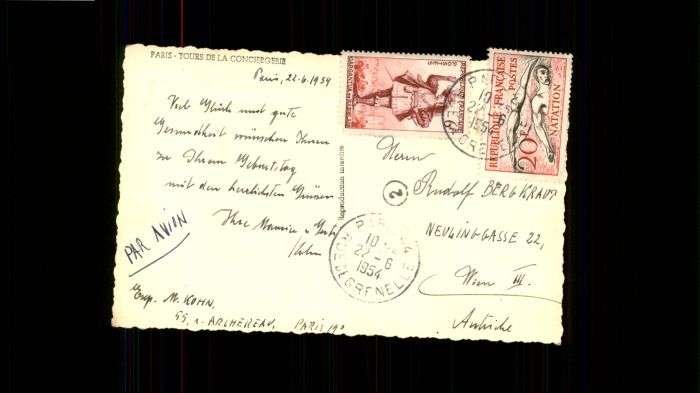 PARIS - TOURS DE LA CONCIERGERIE
Paris, 22.6.1954
Viel Glück und gute
Gesundheit wünschen Ihnen
zu Ihrem Geburtstag
mit den herzlichsten Grüssen
Ihre Maurice u.
Kohn
PAR AVION
Exp. M. KOHN,
55, r. ARCHEREAU, PARIS 19e
Reproduction interdite
RÉPUBLIQUE FRANÇAISE
POSTES
20F
NATATION
PARIS
10
22-6
1954
GRENELLE
Herrn
2
Rudolf BERGKRAUT
NEULINGGASSE 22,
Wien III.
Autriche
PARIS
10
22-6
1954
GRENELLE